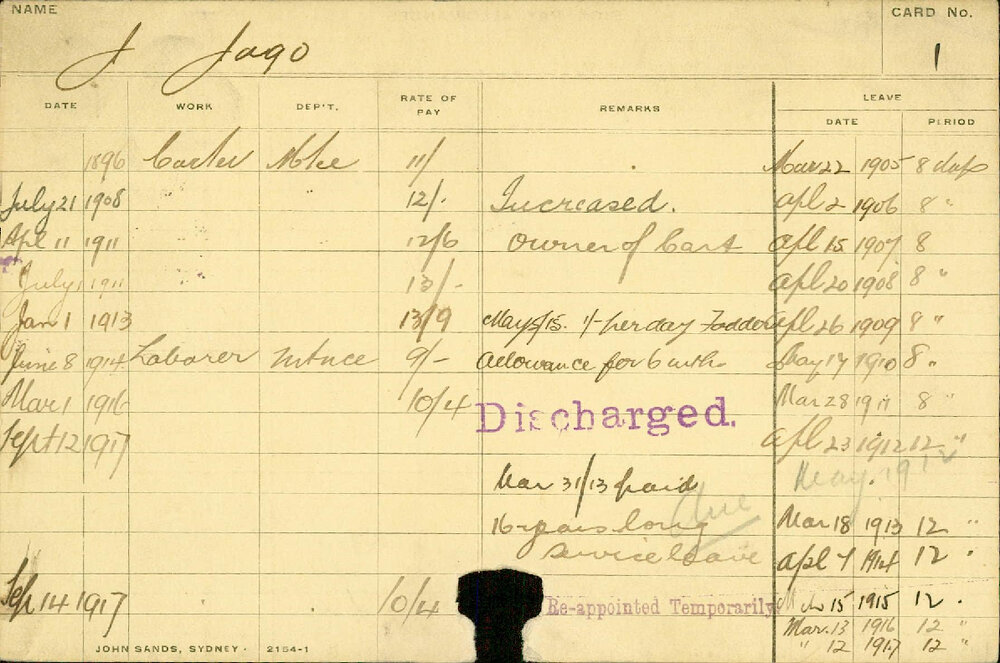 NAME
CARD No.
J Jago
1
DATE WORK DEP'T. RATE OF PAY REMARKS LEAVE
DATE PERIOD
1896 Carter Mtce 11/ Mar 22 1905 8 days
July 21 1908 12/. Increased. Apl 2 1906 8 "
Apl 11 1911 12/6 Owner of Cart Apl 15 1907 8
July 1911 13/- Apl 20 1908 8 "
Jan 1 1913 13/9 May 5/15. 1/- per day Fodder Apl 26 1909 8 "
June 8 1914 Laborer Mtnce 9/- Allowance for 6 mths. May 17 1910 8 "
Mar 1 1916 10/4 Discharged. Mar 28 1911 8 "
Sept 12 1917 Apl 23 1912 12 "
Mar 31/13 paid May. 1912
16 years long Due Mar 18 1913 12 "
Service leave Apl 7 1914 12 "
Sep 14 1917 10/4 Re-appointed Temporarily 15 1915 12 .
Mar. 13 1916 12 "
" 12 1917 12 "
JOHN SANDS, SYDNEY. 2154-1